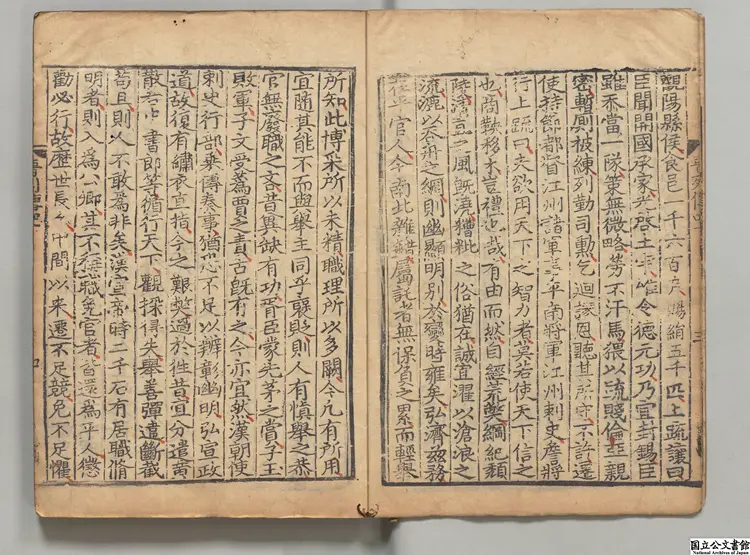 觀陽縣侯食邑一千六百户賜絹五千匹上疏讓曰
臣聞開國承家光啓土宇唯令德元功乃宜封錫臣
雖忝當一隊策無微略勞不汗馬猥以流賤倫亞親
密暫厠被練列勤司勳乞迴謬恩聽其所守不許遷
使持節都督江州諸軍事平南將軍江州刺史詹將
行上疏曰夫欲用天下之智力者莫若使天下信之
也商鞅移木豈禮也哉有由而然自經荒弊綱紀頹
陵清直之風旣澆糟粃之俗猶在誠宜濯以滄浪之
流漉以吞舟之網則幽顯明別於變時雍矣弘濟茲務
在乎官人今南北雜錯屬託者無保負之累而輕舉
所知此博采所以未精職理所以多闕今凡有所用
宜隨其能不而與舉主同乎襃貶則人有慎舉之恭
官無廢職之吝昔冀缺有功胥臣蒙先茅之賞子玉
敗軍子文受蔿賈之責古旣有之今亦宜然漢朝使
刺史行部乗傳奏事猶恐不足以辨彰幽明弘宣政
道故復有繡衣直指今之艱弊過於往昔宜分遣黄
散若中書郎等循行天下觀採得失舉善彈違斷截
苟且則人不敢為非矣漢宣帝時二千石有居職脩
明者則入為公卿其不稱職免官者皆還為平人懲
勸必行故歷世長久中間以來遷不足競免不足懼
国立公文書館
National Archives of Japan